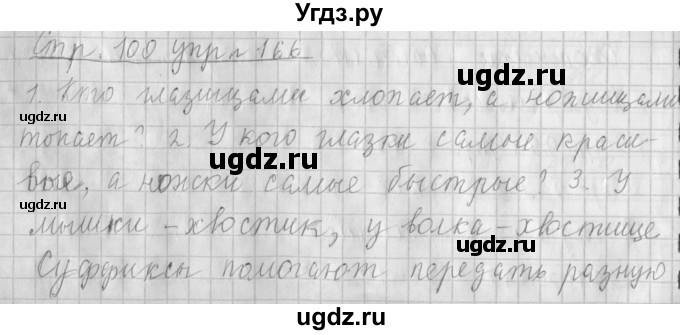 Угдз.ру
Стр. 100 упр. 166
ugdz.ru ugdz.ru
1. Кто глазищами хлопает, а ножищами
ugdz.ru
топает? 2. У кого глазки самые краси-
ugdz.ru
вые, а ножки самые быстрые? 3. У
ugdz.ru ugdz.ru
мышки - хвостик, у волка - хвостище
ugdz.ru
Суффиксы помогают передать разную
ugdz.ru